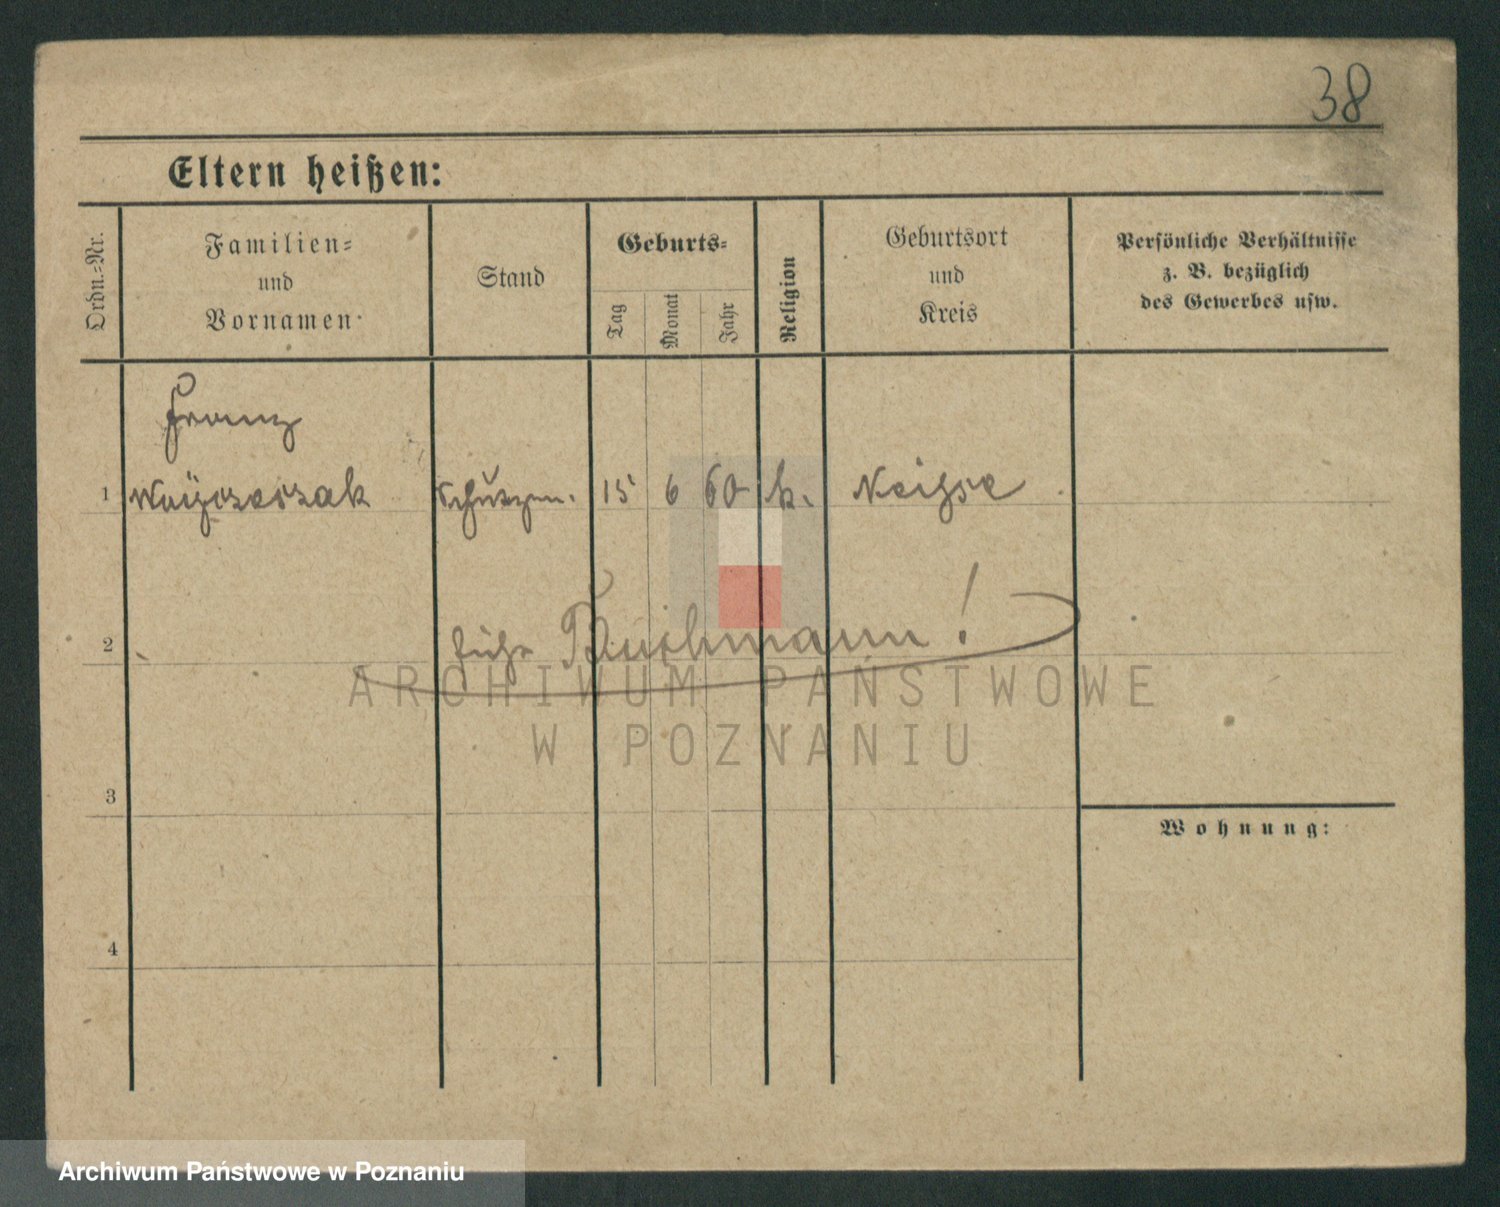 38
Eltern heißen:
Ordn.-Nr.
Familien-
und
Vornamen
Stand
Geburts-
Tag
Monat
Jahr
Religion
Geburtsort
und
Kreis
Persönliche Verhältnisse
z. B. bezüglich
des Gewerbes usw.
Franz
1 15 6 60 k. Neisse
2 siehe Buschmann!
3
Wohnung:
4
ARCHIWUM PAŃSTWOWE
W POZNANIU
Archiwum Państwowe w Poznaniu